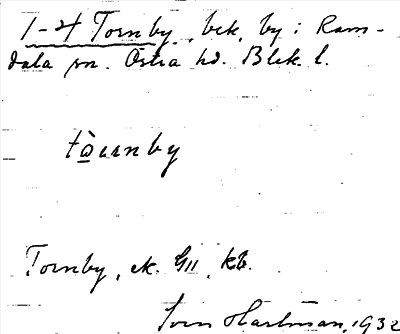 1-4 Tornby, bek. by i Ram-
dala sn. Östra hd. Blek. l.
tɷ̀rnby
Tornby, ek. G11, kb.
Sven Hartman, 1932